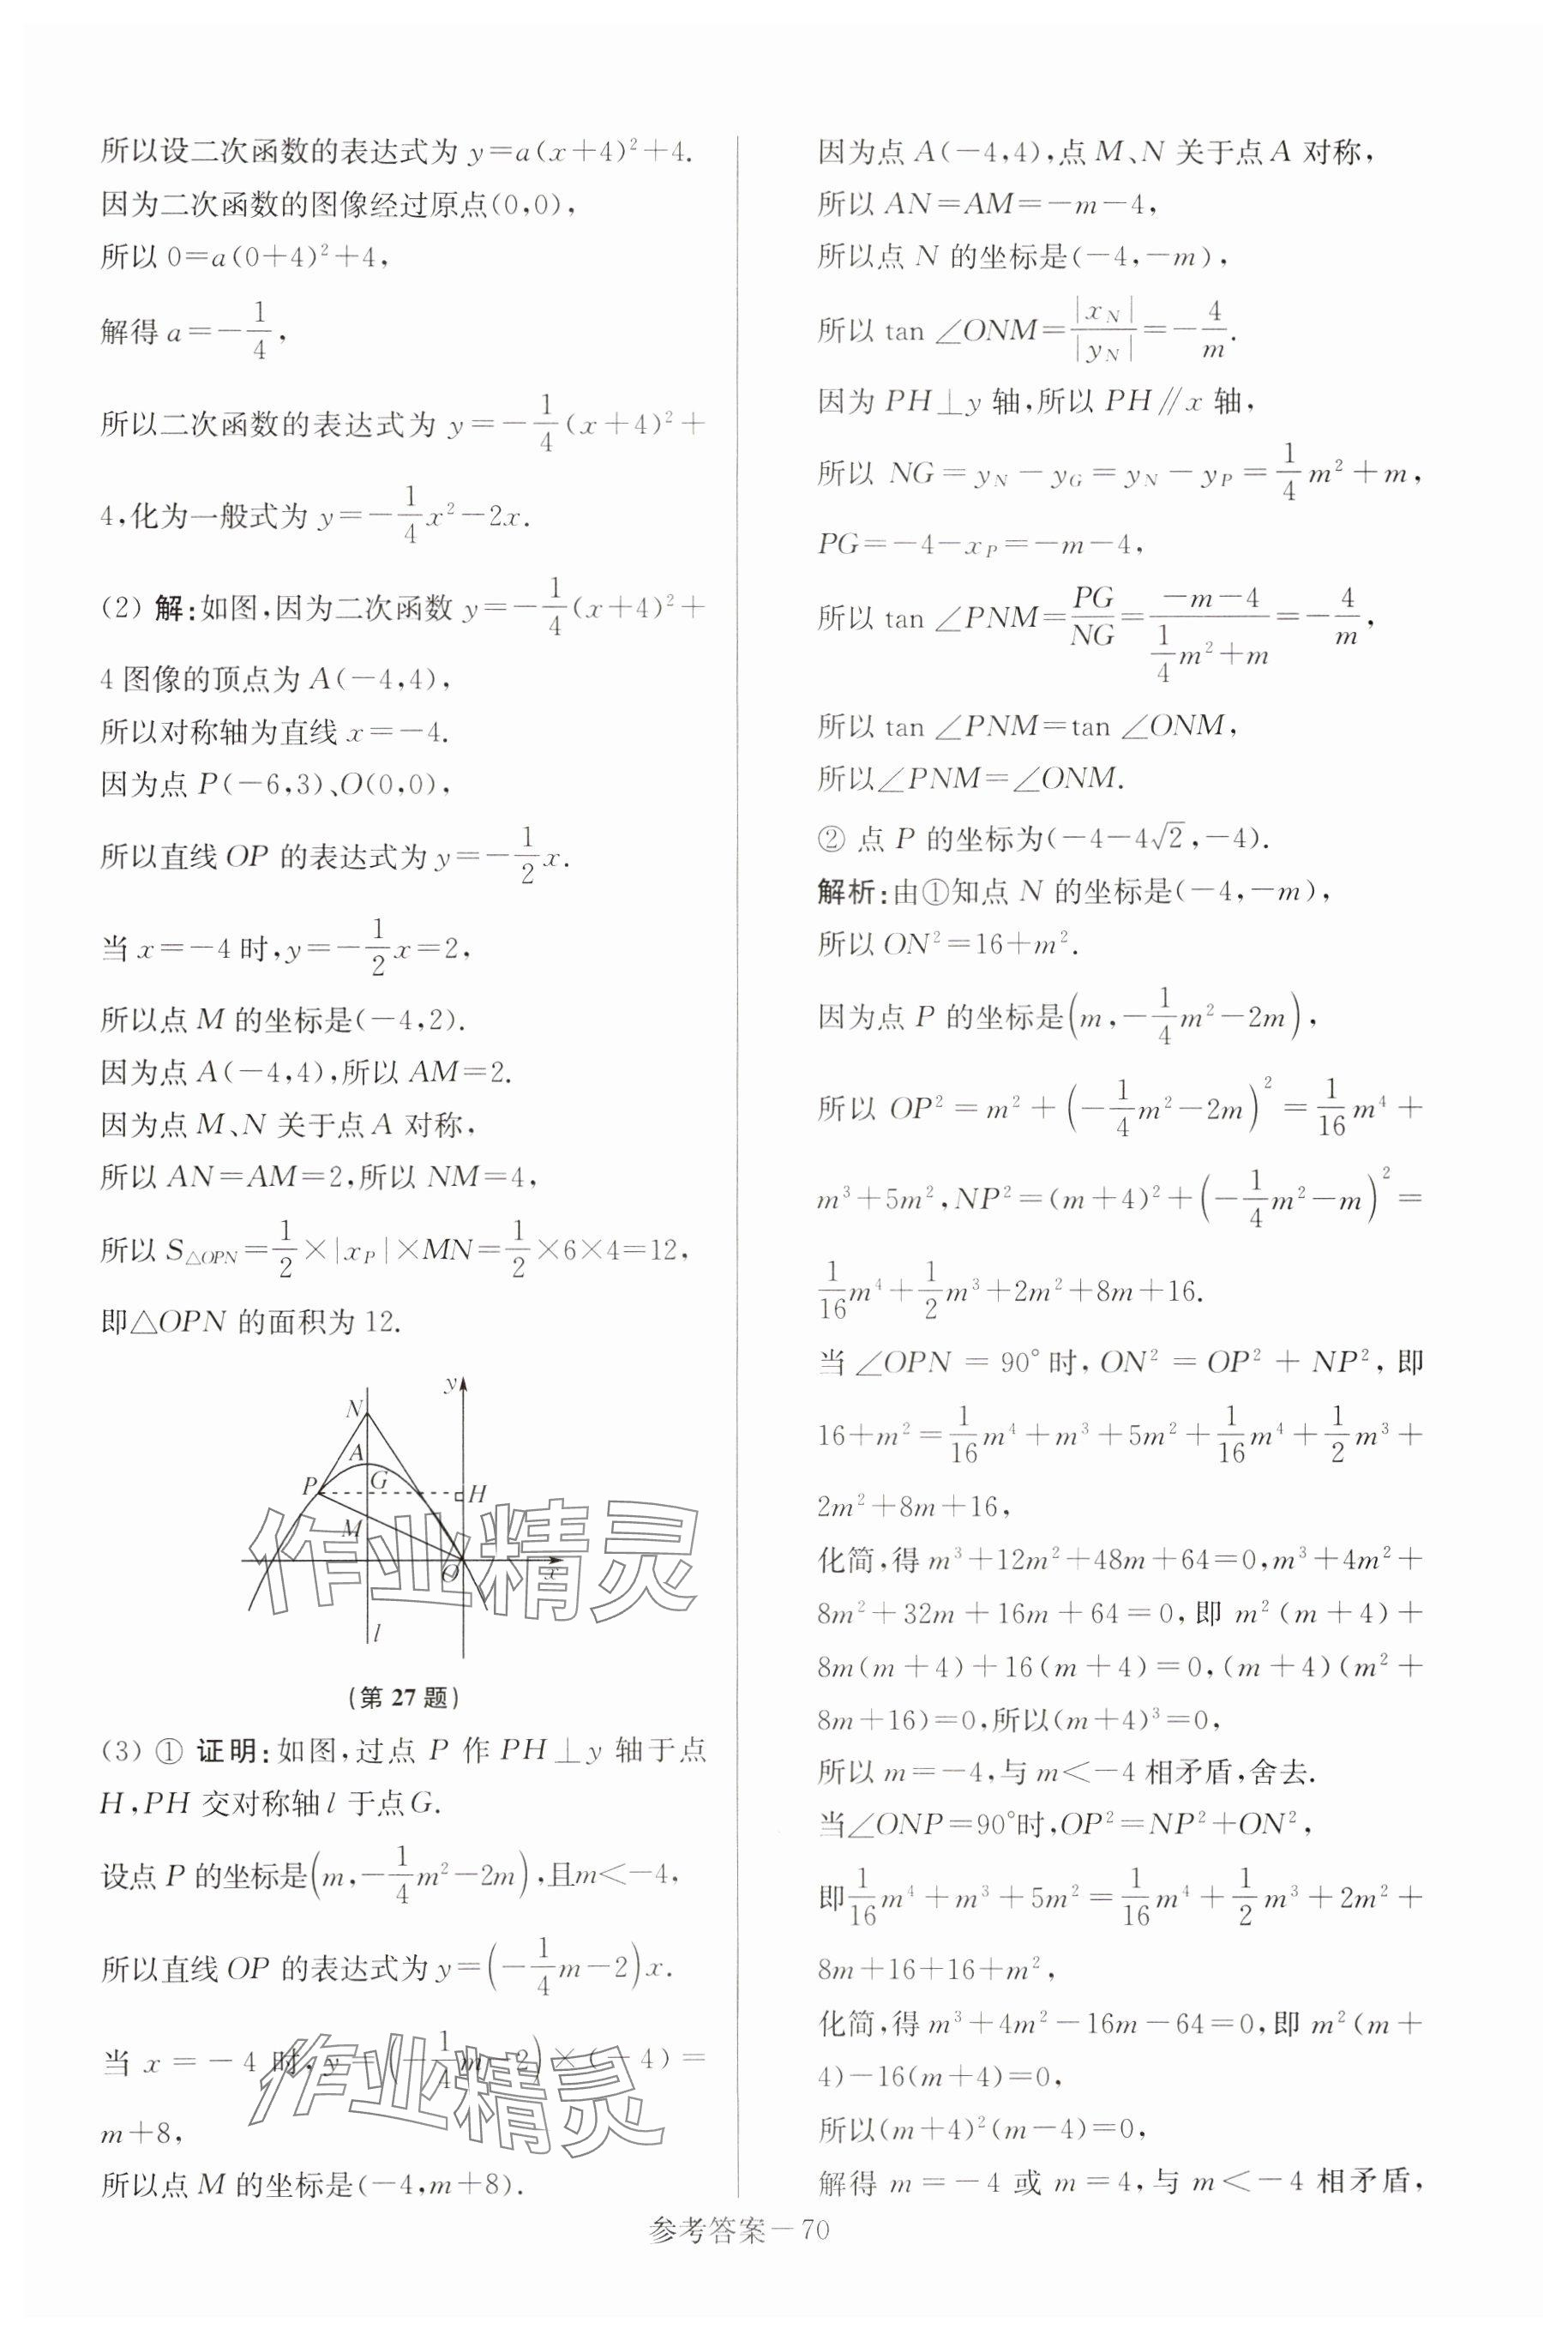 所以设二次函数的表达式为 y=a(x+4)²+4.
因为二次函数的图像经过原点(0,0),
所以 0=a(0+4)²+4,
解得 a=-1/4,
所以二次函数的表达式为 y=-1/4(x+4)²+
4,化为一般式为 y=-1/4x²-2x.
(2) 解:如图,因为二次函数 y=-1/4(x+4)²+
4 图像的顶点为 A(-4,4),
所以对称轴为直线 x=-4.
因为点 P(-6,3)、O(0,0),
所以直线 OP 的表达式为 y=-1/2x.
当 x=-4 时,y=-1/2x=2,
所以点 M 的坐标是(-4,2).
因为点 A(-4,4),所以 AM=2.
因为点 M、N 关于点 A 对称,
所以 AN=AM=2,所以 NM=4,
所以 S△OPN=1/2×|xP|×MN=1/2×6×4=12,
即△OPN 的面积为 12.
y
N
A
P
G
H
M
O
x
l
作业精灵
(第 27 题)
(3) ① 证明:如图,过点 P 作 PH⊥y 轴于点
H,PH 交对称轴 l 于点 G.
设点 P 的坐标是(m,-1/4m²-2m),且m<-4,
所以直线 OP 的表达式为 y=(-1/4m-2)x.
当 x=-4 时,y=(-1/4m-2)×(-4)=
作业精灵
m+8,
所以点 M 的坐标是(-4,m+8).
因为点 A(-4,4),点 M、N 关于点 A 对称,
所以 AN=AM=-m-4,
所以点 N 的坐标是(-4,-m),
所以 tan ∠ONM=|xN|/|yN|=-4/m.
因为 PH⊥y 轴,所以 PH∥x 轴,
所以 NG=yN-yG=yN-yP=1/4m²+m,
PG=-4-xP=-m-4,
所以 tan ∠PNM=PG/NG=(-m-4)/(1/4m²+m)=-4/m,
所以 tan ∠PNM=tan ∠ONM,
所以∠PNM=∠ONM.
② 点 P 的坐标为(-4-4√2,-4).
解析:由①知点 N 的坐标是(-4,-m),
所以 ON²=16+m².
因为点 P 的坐标是(m,-1/4m²-2m),
所以 OP²=m²+(-1/4m²-2m)²=1/16m⁴+
m³+5m²,NP²=(m+4)²+(-1/4m²-m)²=
1/16m⁴+1/2m³+2m²+8m+16.
当∠OPN=90°时,ON²=OP²+NP²,即
16+m²=1/16m⁴+m³+5m²+1/16m⁴+1/2m³+
2m²+8m+16,
化简,得 m³+12m²+48m+64=0,m³+4m²+
8m²+32m+16m+64=0,即 m²(m+4)+
8m(m+4)+16(m+4)=0,(m+4)(m²+
8m+16)=0,所以(m+4)³=0,
所以 m=-4,与 m<-4 相矛盾,舍去.
当∠ONP=90°时,OP²=NP²+ON²,
即1/16m⁴+m³+5m²=1/16m⁴+1/2m³+2m²+
8m+16+16+m²,
化简,得 m³+4m²-16m-64=0,即 m²(m+
4)-16(m+4)=0,
所以(m+4)²(m-4)=0,
解得 m=-4 或 m=4,与 m<-4 相矛盾,
参考答案-70